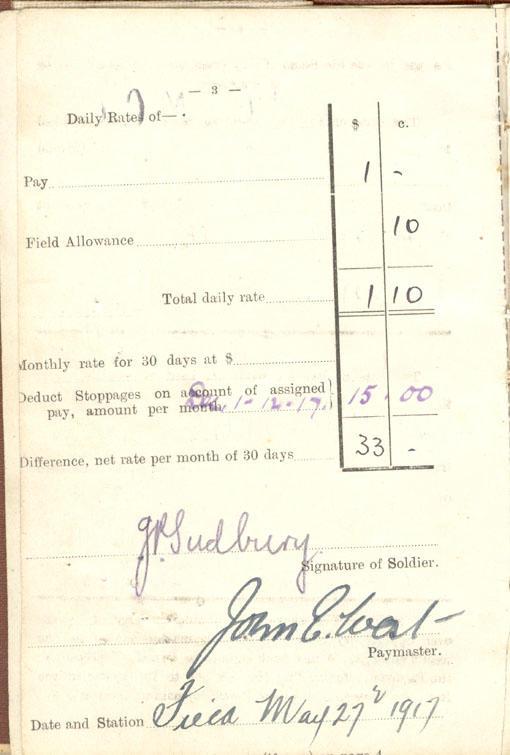 — 3 —
Daily Rates of—
$ c.
Pay 1 -
Field Allowance 10
Total daily rate 1 10
Monthly rate for 30 days at $
Deduct Stoppages on account of assigned
pay, amount per month 1-12-17. 15.00
Difference, net rate per month of 30 days 33 -
Sudbury
Signature of Soldier.
John E.
Paymaster.
Date and Station Field May 27 1917